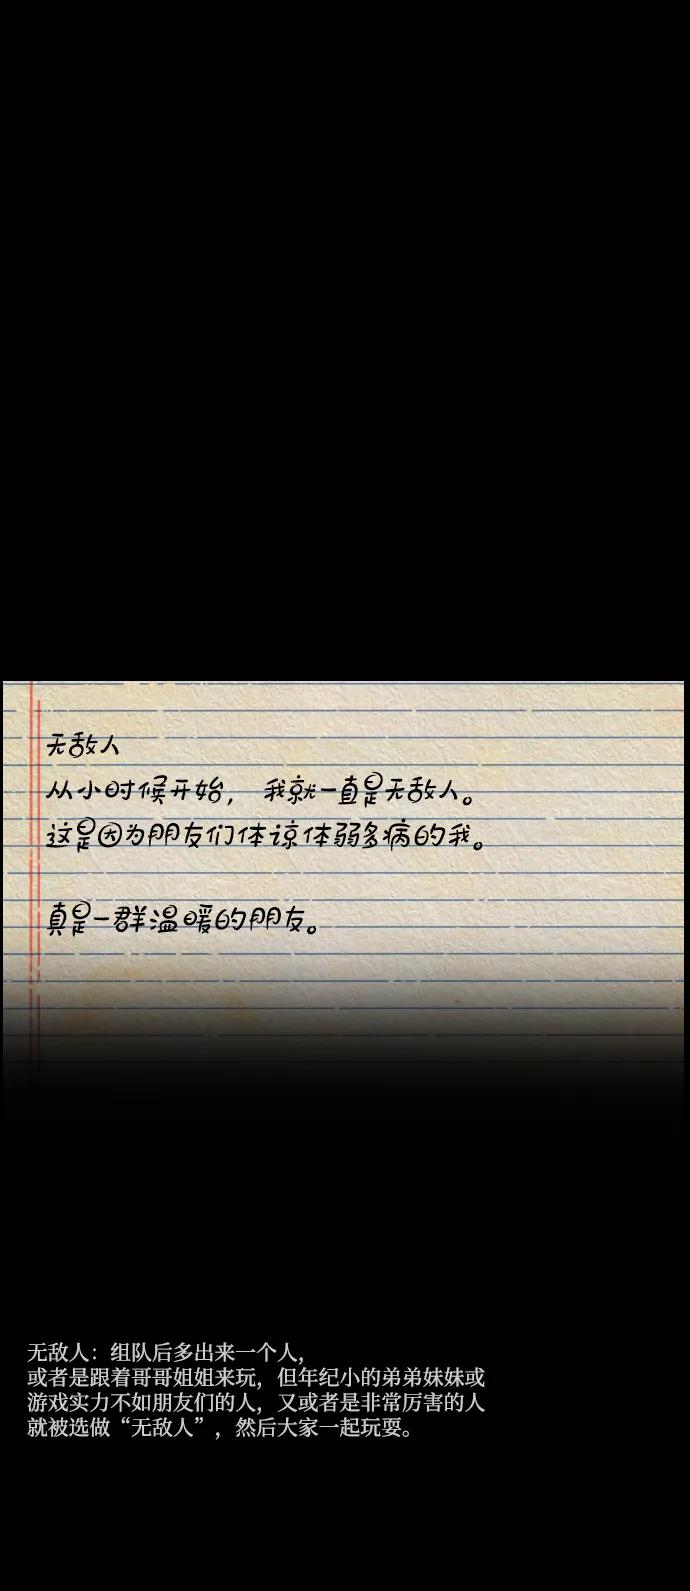 无敌人
从小时候开始，我就一直是无敌人。
这是因为朋友们体谅体弱多病的我。
真是一群温暖的朋友。
无敌人：组队后多出来一个人，
或者是跟着哥哥姐姐来玩，但年纪小的弟弟妹妹或
游戏实力不如朋友们的人，又或者是非常厉害的人
就被选做“无敌人”，然后大家一起玩耍。